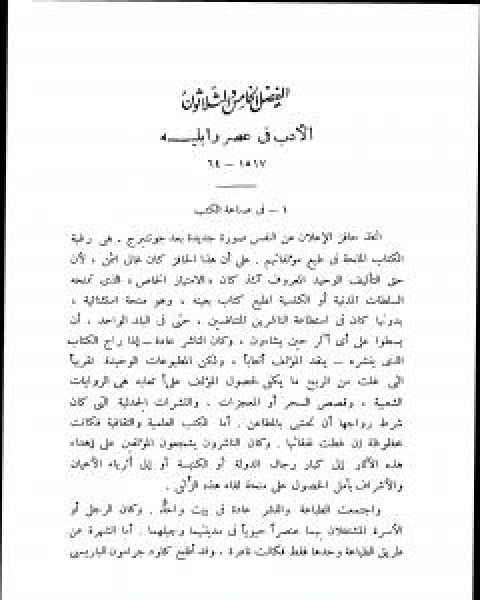 الفصل الخامس والثلاثون
الأدب فى عصر رابليه
١٥١٧ – ٦٤
١ – فى صناعة الكتب
اتخذ حافز الإعلان عن النفس صورة جديدة بعد جوتنبرج ، هى رغبة
الكتاب الملحة فى طبع مؤلفاتهم . على أن هذا الحافز كان غالى الثمن ، لأن
حق التأليف الوحيد المعروف آنئذ كان «الامتياز الخاص» الذى تمنحه
السلطات المدنية أو الكنسية لطبع كتاب بعينه ، وهو منحة استثنائية ،
بدونها كان فى استطاعة الناشرين المتنافسين ، حتى فى البلد الواحد ، أن
يسطوا على أى أثر حين يشاءون . وكان الناشر عادة – إذا راج الكتاب
الذى ينشره – ينقد المؤلف أتعاباً ، ولكن المطبوعات الوحيدة تقريباً
التى غلت من الريع ما يكفى لحصول المؤلف على أتعابه هى الروايات
الشعبية ، وقصص السحر أو المعجزات ، والنشرات الجدلية التى كان
شرط رواجها أن تحشى بالمطاعن . أما الكتب العلمية والثقافية فكانت
محظوظة إن غطت نفقاتها . وكان الناشرون يشجعون المؤلفين على إهداء
هذه الآثار إلى كبار رجال الدولة أو الكنيسة أو إلى أثرياء الأعيان
والأشراف بأمل الحصول على منحة لقاء هذه الزلفى .
واجتمعت الطباعة والنشر عادة فى بيت واحد ، وكان الرجل أو
الأسرة المشتغلان بهما عنصراً حيوياً فى مدينتهما وجيلهما . أما الشهرة عن
طريق الطباعة وحدها فقط فكانت نادرة ، وقد أفلح كلود جرامون الباريسى